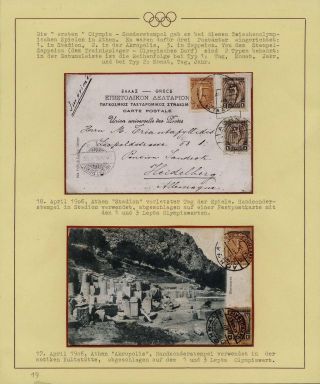 Die "ersten" Olympia - Sonderstempel gab es bei diesen Zwischenolympi-
schen Spielen in Athen. Es waren dafür drei Postämter eingerichtet:
1. im Stadion, 2. in der Akropolis, 3. in Zappeion. Von dem Stempel
Zappeion (dem Trainingslager - Olympisches Dorf) sind 2 Typen bekannt
in der Datumsleiste ist die Reihenfolge bei Typ 1: Tag, Monat, Jahr,
und bei Typ 2: Monat, Tag, Jahr.
ΕΛΛΑΣ — GRÈCE
ΕΠΙΣΤΟΛΙΚΟΝ ΔΕΛΤΑΡΙΟΝ
ΠΑΓΚΟΣΜΙΟΣ ΤΑΧΥΔΡΟΜΙΚΗ ΣΥΝΕΝΩΣΙΣ
CARTE POSTALE
Union universelle des Postes
Herrn
Pension
Heidelberg
Allemagne
18. April 1906, Athen "Stadion" vorletzter Tag der Spiele. Handsonder-
stempel in Stadion verwendet, abgeschlagen auf einer Festpostkarte mit
den 1 und 3 Lepta Olympiamarken.
17. April 1906, Athen "Akropolis", Handsonderstempel verwendet in der
antiken Kultstätte, abgeschlagen auf den 1 und 3 Lepta Olympiawert.
19